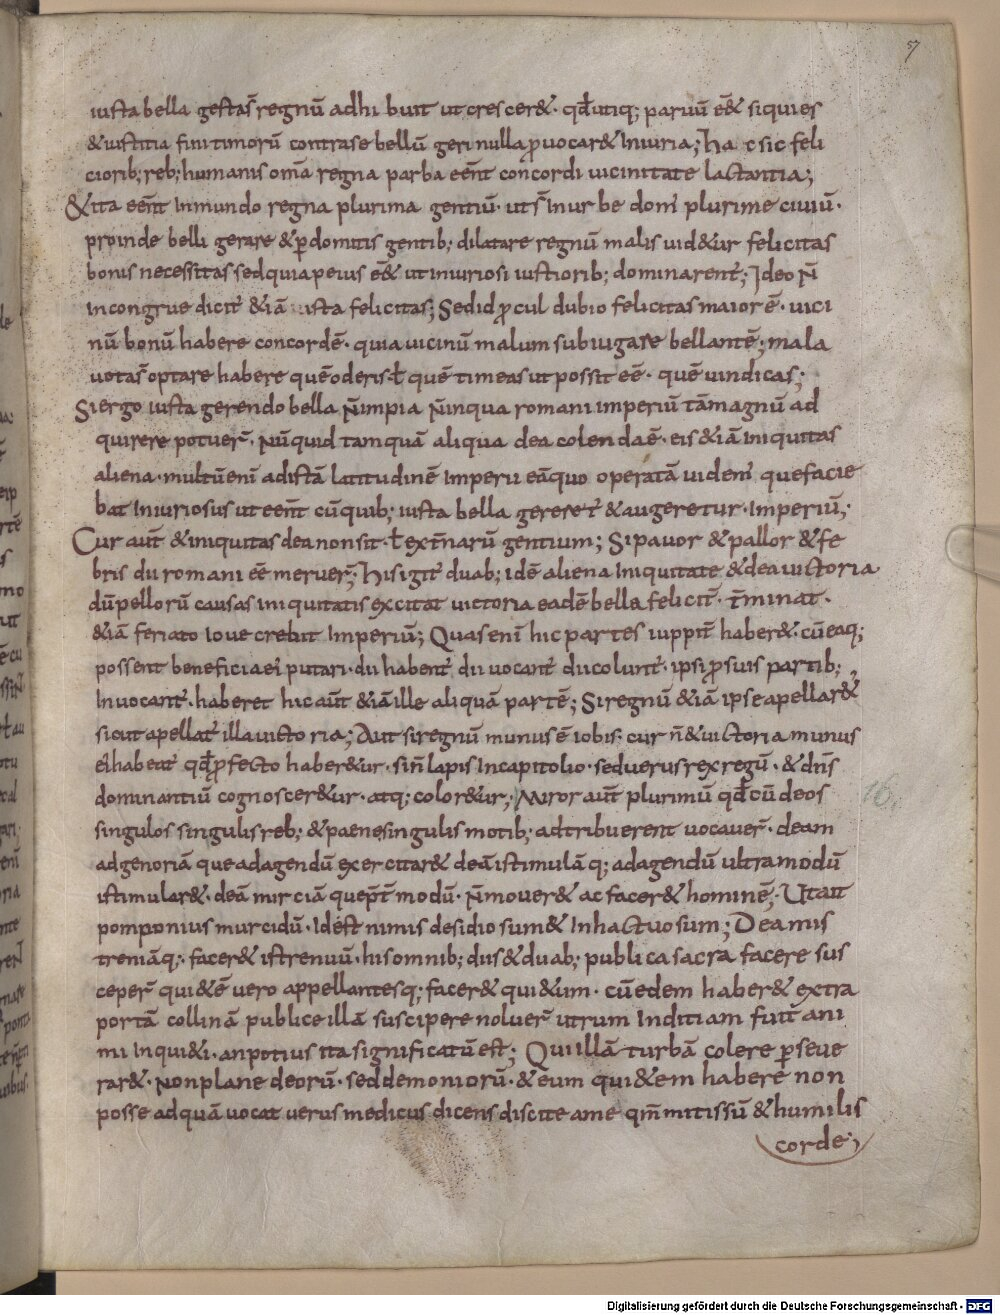 57
iusta bella gestas̄ regnū adhi buit ut crescer&. qđutiq; paruū ēe& siquies
&iustitia finitimorū contrase bellū geri nulla ꝓuocar& iniuria; ha c sic feli
ciorib; reb; humanis om̄a regna parba eēnt concordi uicinitate laetantia;
&ita eēnt inmundo regna plurima gentiū. uts̄ inur be dom̄ plurime ciuiū.
proinde belli gerare &ꝑdomitis gentib; dilatare regnū malis uid&ur felicitas
bonis necessitas sedquiapeius ēe& ut iniuriosi iustiorib; dominarent; Ideo n̄
incongrue dicit̄ &iā iusta felicitas; Sedid ꝓcul dubio felicitas maior ē. uici
nū bonū habere concordē. quia uicinū malum subiugare bellantē; mala
uotas̄ optare habere quē oderis. ł quē timeas ut possit eē. quē uindicas;
Siergo iusta gerendo bella n̄ impia n̄ inqua romani imperiū tāmagnū ad
quirere potuer̄. nūquid tamquā aliqua dea colendaē. eis &iā iniquitas
aliena. multū enī adistā latitudinē imperii eāquo operatā uidem̄ quefacie
bat iniuriosus ut eēnt cū quib; iusta bella gereret̄ &augeretur. imperiū;
Cur aut̄ &iniquitas dea non sit. ł ext̄narū gentium; Si pauor &pallor &fe
bris dii romani eē meruer̄; hisigit̄ duab; idē aliena iniquitate &deauictoria
dū pellorū causas iniquitatis excitat uictoria eadē bella felicit̄. t̄minat.
&iā feriato ioue crebit imperiū; Quas enī hic partes iuppit̄ haber&. cū eaq;
possent beneficia ei putari. dii habent̄ dii uocant̄ dii colunt̄. ipsi ꝓsuis partib;
inuocant̄. haberet hic aut̄ &iā ille aliquā partē; Siregnū &iā ipse apellar&
sicut apellat̄ illa uicto ria; Aut siregnū munus ē iobis. cur n̄ &uictoria munus
ei habeat̄ qđ ꝓfecto haber&ur. sin̄ lapis incapitolio. seduerus rex regū. & dn̄s
dominantiū cognoscer&ur. atq; color&ur; Miror aut̄ plurimū qđ cū deos
16.
singulos singulis reb; &paene singulis motib; adtribuerent uocauer̄. deam
adgenoriā que adagendū exercitar& deā istimulā q; adagendū ultra modū
istimular&. deā mirciā quep̄t̄ modū. n̄ mouer& ac facer& hominē; Ut ait
pomponius murcidū. id ēst nimis desidiosum & inhactuosum; Deamis
treniāq;. facer& istrenuū. his omnib; diis &duab; publica sacra facere sus
ceper̄ qui&ē uero appellantesq; facer& qui&um. cū edem haber& extra
portā collinā publice illā suscipere noluer̄ utrum inditiam fuit̄ ani
mi inqui&i. anpotius ita significatū est; Qui illā turbā colere ꝑseue
rar&. nonplane deorū. seddemoniorū. &eum qui&em habere non
posse adquā uocat uerus medicus dicens discite ame qm̄ mitissū &humilis
corde;
Digitalisierung gefördert durch die Deutsche Forschungsgemeinschaft - DFG